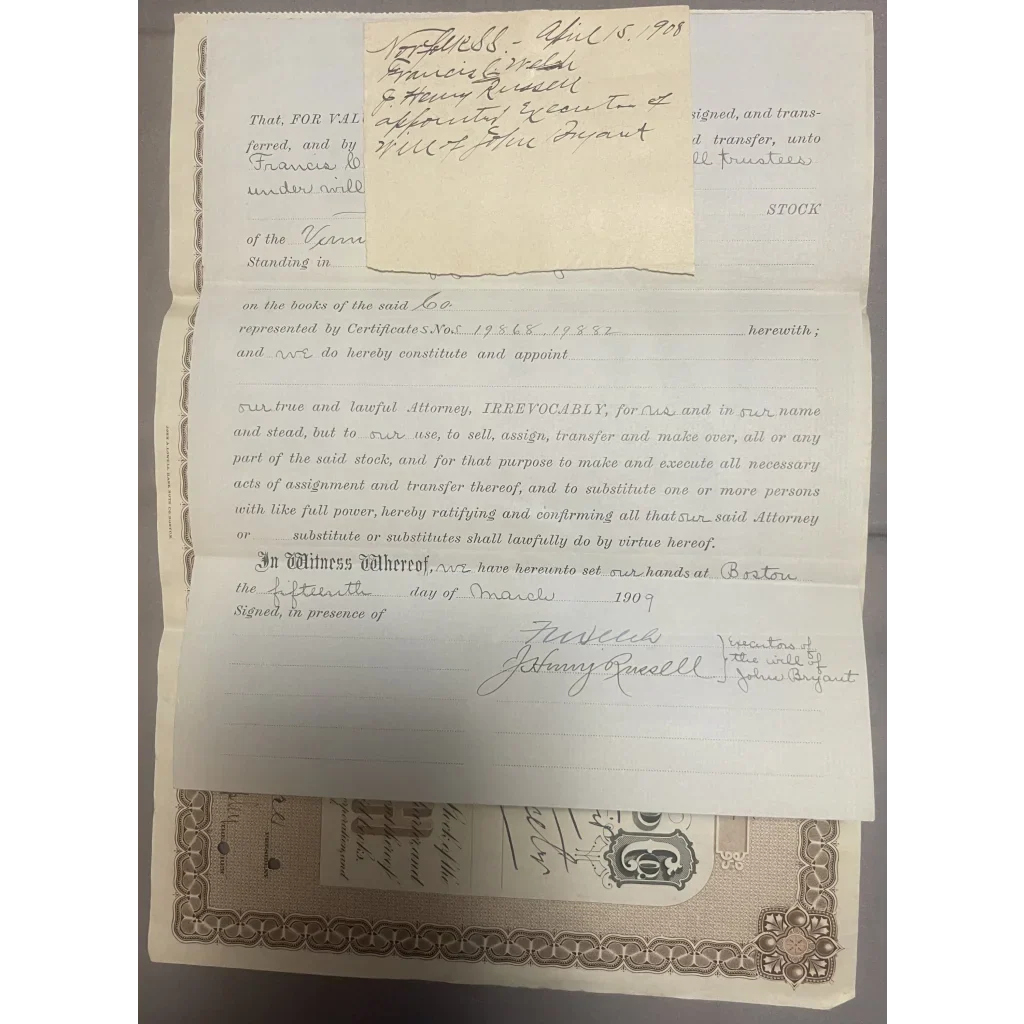 Norfolk SS. - April 15, 1908
Francis C. Welch
J. Henry Russell
appointed Executors of
Will of John Bryant
That, FOR VAL signed, and trans-
ferred, and by d transfer, unto
Francis C ll trustees
under will
STOCK
of the Verm
Standing in
on the books of the said Co.
represented by Certificates Nos 19868, 19882 herewith;
and we do hereby constitute and appoint
our true and lawful Attorney, IRREVOCABLY, for us and in our name
and stead, but to our use, to sell, assign, transfer and make over, all or any
part of the said stock, and for that purpose to make and execute all necessary
acts of assignment and transfer thereof, and to substitute one or more persons
with like full power, hereby ratifying and confirming all that our said Attorney
or substitute or substitutes shall lawfully do by virtue hereof.
In Witness Whereof, we have hereunto set our hands at Boston
the fifteenth day of March 1909
Signed, in presence of
FC Welch
J. Henry Russell
Executors of
the will of
John Bryant
Co.